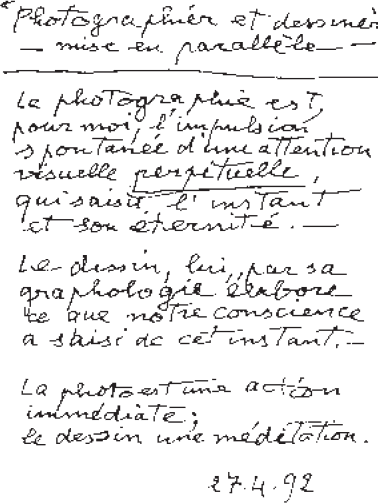 "Photographier et dessiner
— mise en parallèle —
La photographie est,
pour moi, l'impulsion
spontanée d'une attention
visuelle perpétuelle,
qui saisit l'instant
et son éternité. —
Le dessin, lui, par sa
graphologie élabore
ce que notre conscience
a saisi de cet instant. —
La photo est une action
immédiate;
le dessin une méditation.
27.4.92